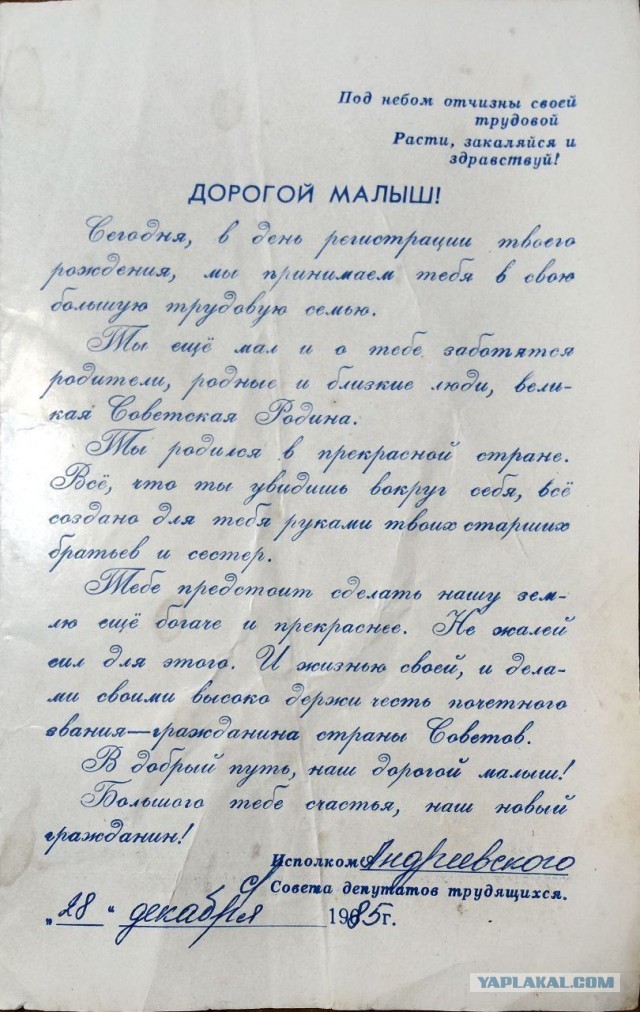 Под небом отчизны своей
трудовой
Расти, закаляйся и
здравствуй!
ДОРОГОЙ МАЛЫШ!
Сегодня, в день регистрации твоего
рождения, мы принимаем тебя в свою
большую трудовую семью.
Ты ещё мал и о тебе заботятся
родители, родные и близкие люди, вели-
кая Советская Родина.
Ты родился в прекрасной стране.
Всё, что ты увидишь вокруг себя, всё
создано для тебя руками твоих старших
братьев и сестер.
Тебе предстоит сделать нашу зем-
лю ещё богаче и прекраснее. Не жалей
сил для этого. И жизнью своей, и дела-
ми своими высоко держи честь почетного
звания—гражданина страны Советов.
В добрый путь, наш дорогой малыш!
Большого тебе счастья, наш новый
гражданин!
Исполком Андреевского
с/ Совета депутатов трудящихся.
„28“ декабря 1985г.
YAPLAKAL.COM